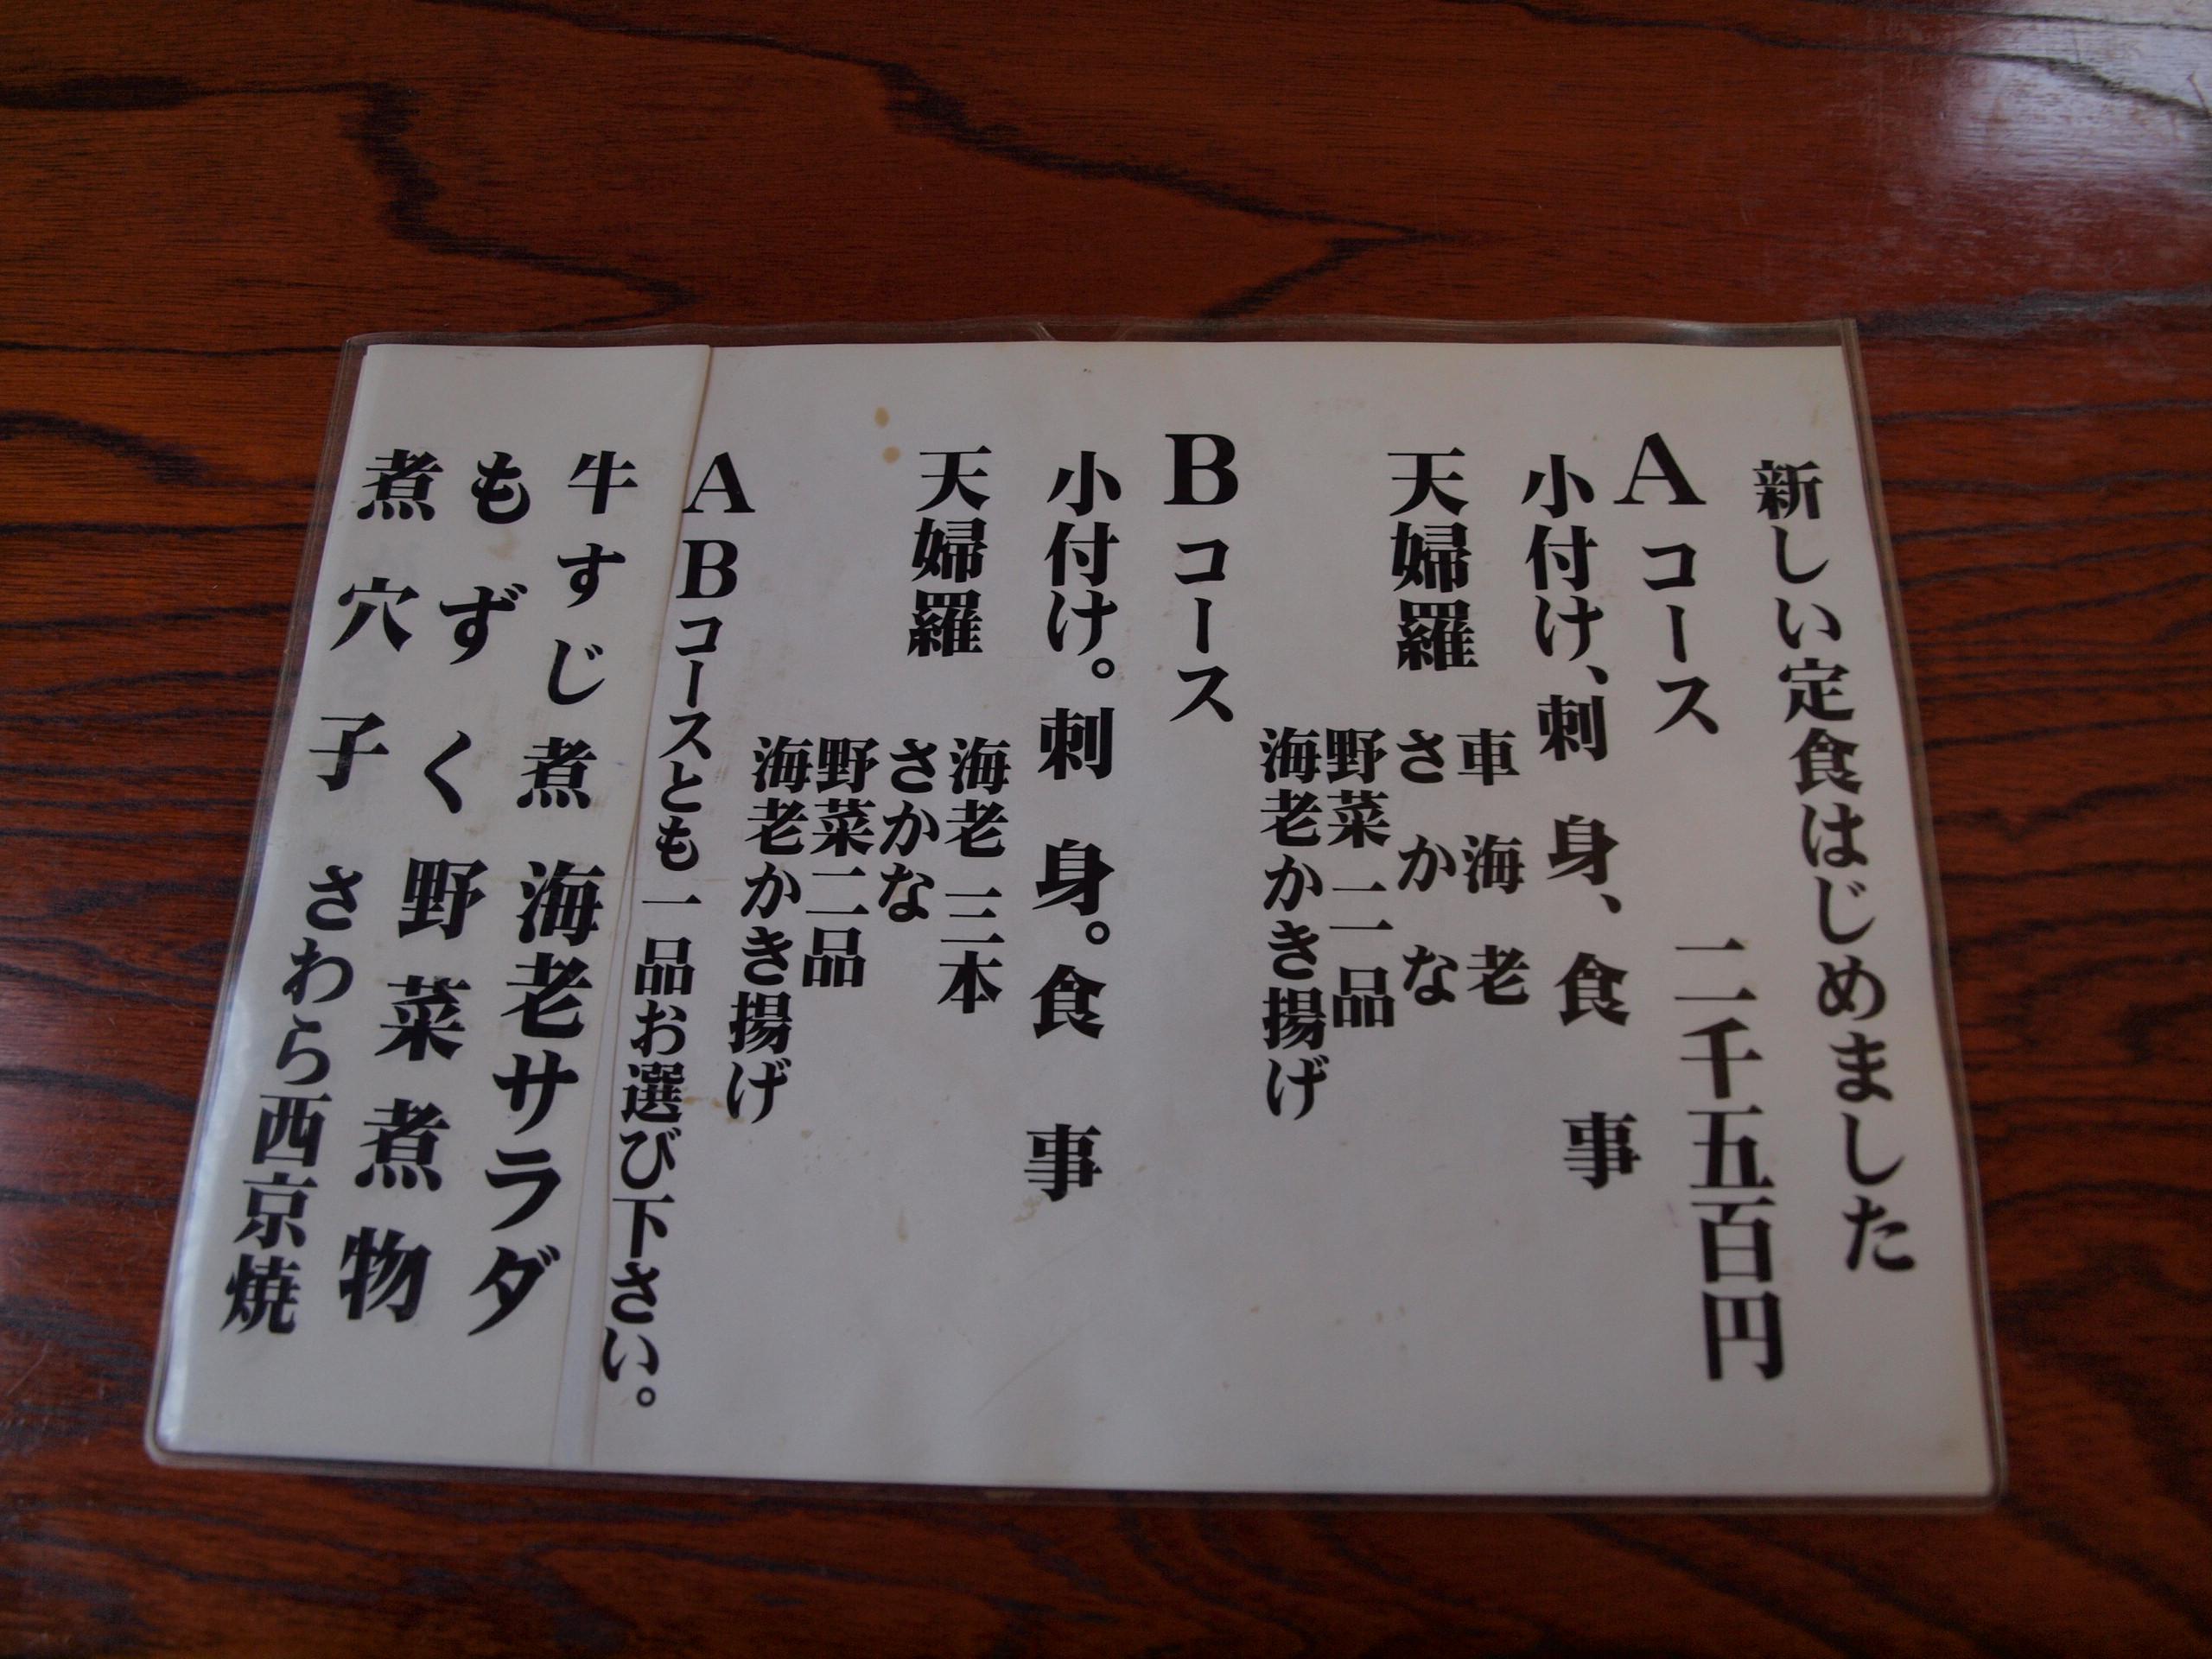 新しい定食はじめました
Aコース 二千五百円
小付け、刺身、食事
天婦羅 車海老
さかな
野菜二品
海老かき揚げ
Bコース
小付け。刺身。食事
天婦羅 海老三本
さかな
野菜二品
海老かき揚げ
ABコースとも一品お選び下さい。
牛すじ煮 海老サラダ
もずく 野菜煮物
煮穴子 さわら西京焼